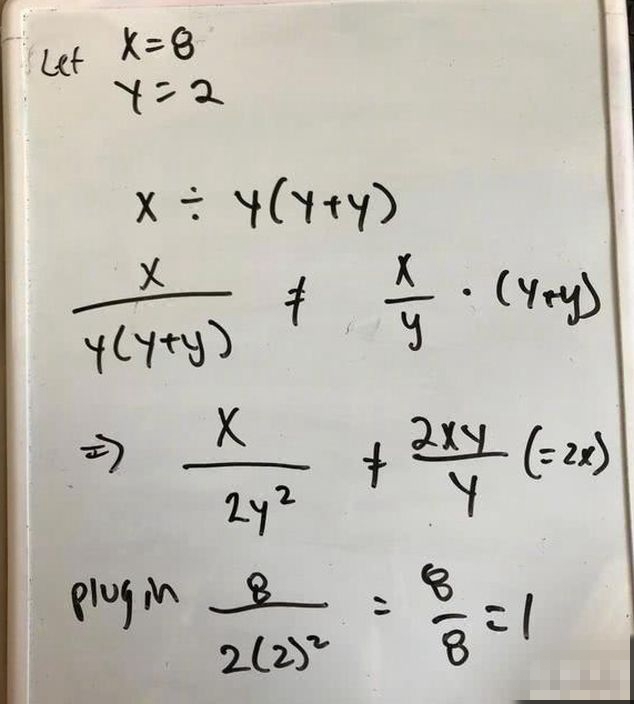 Let x=8
y=2
x ÷ y(y+y)
x/(y(y+y)) ≠ x/y · (y+y)
⇒ x/(2y²) ≠ 2xy/y (=2x)
plug in 8/(2(2)²) = 8/8 = 1